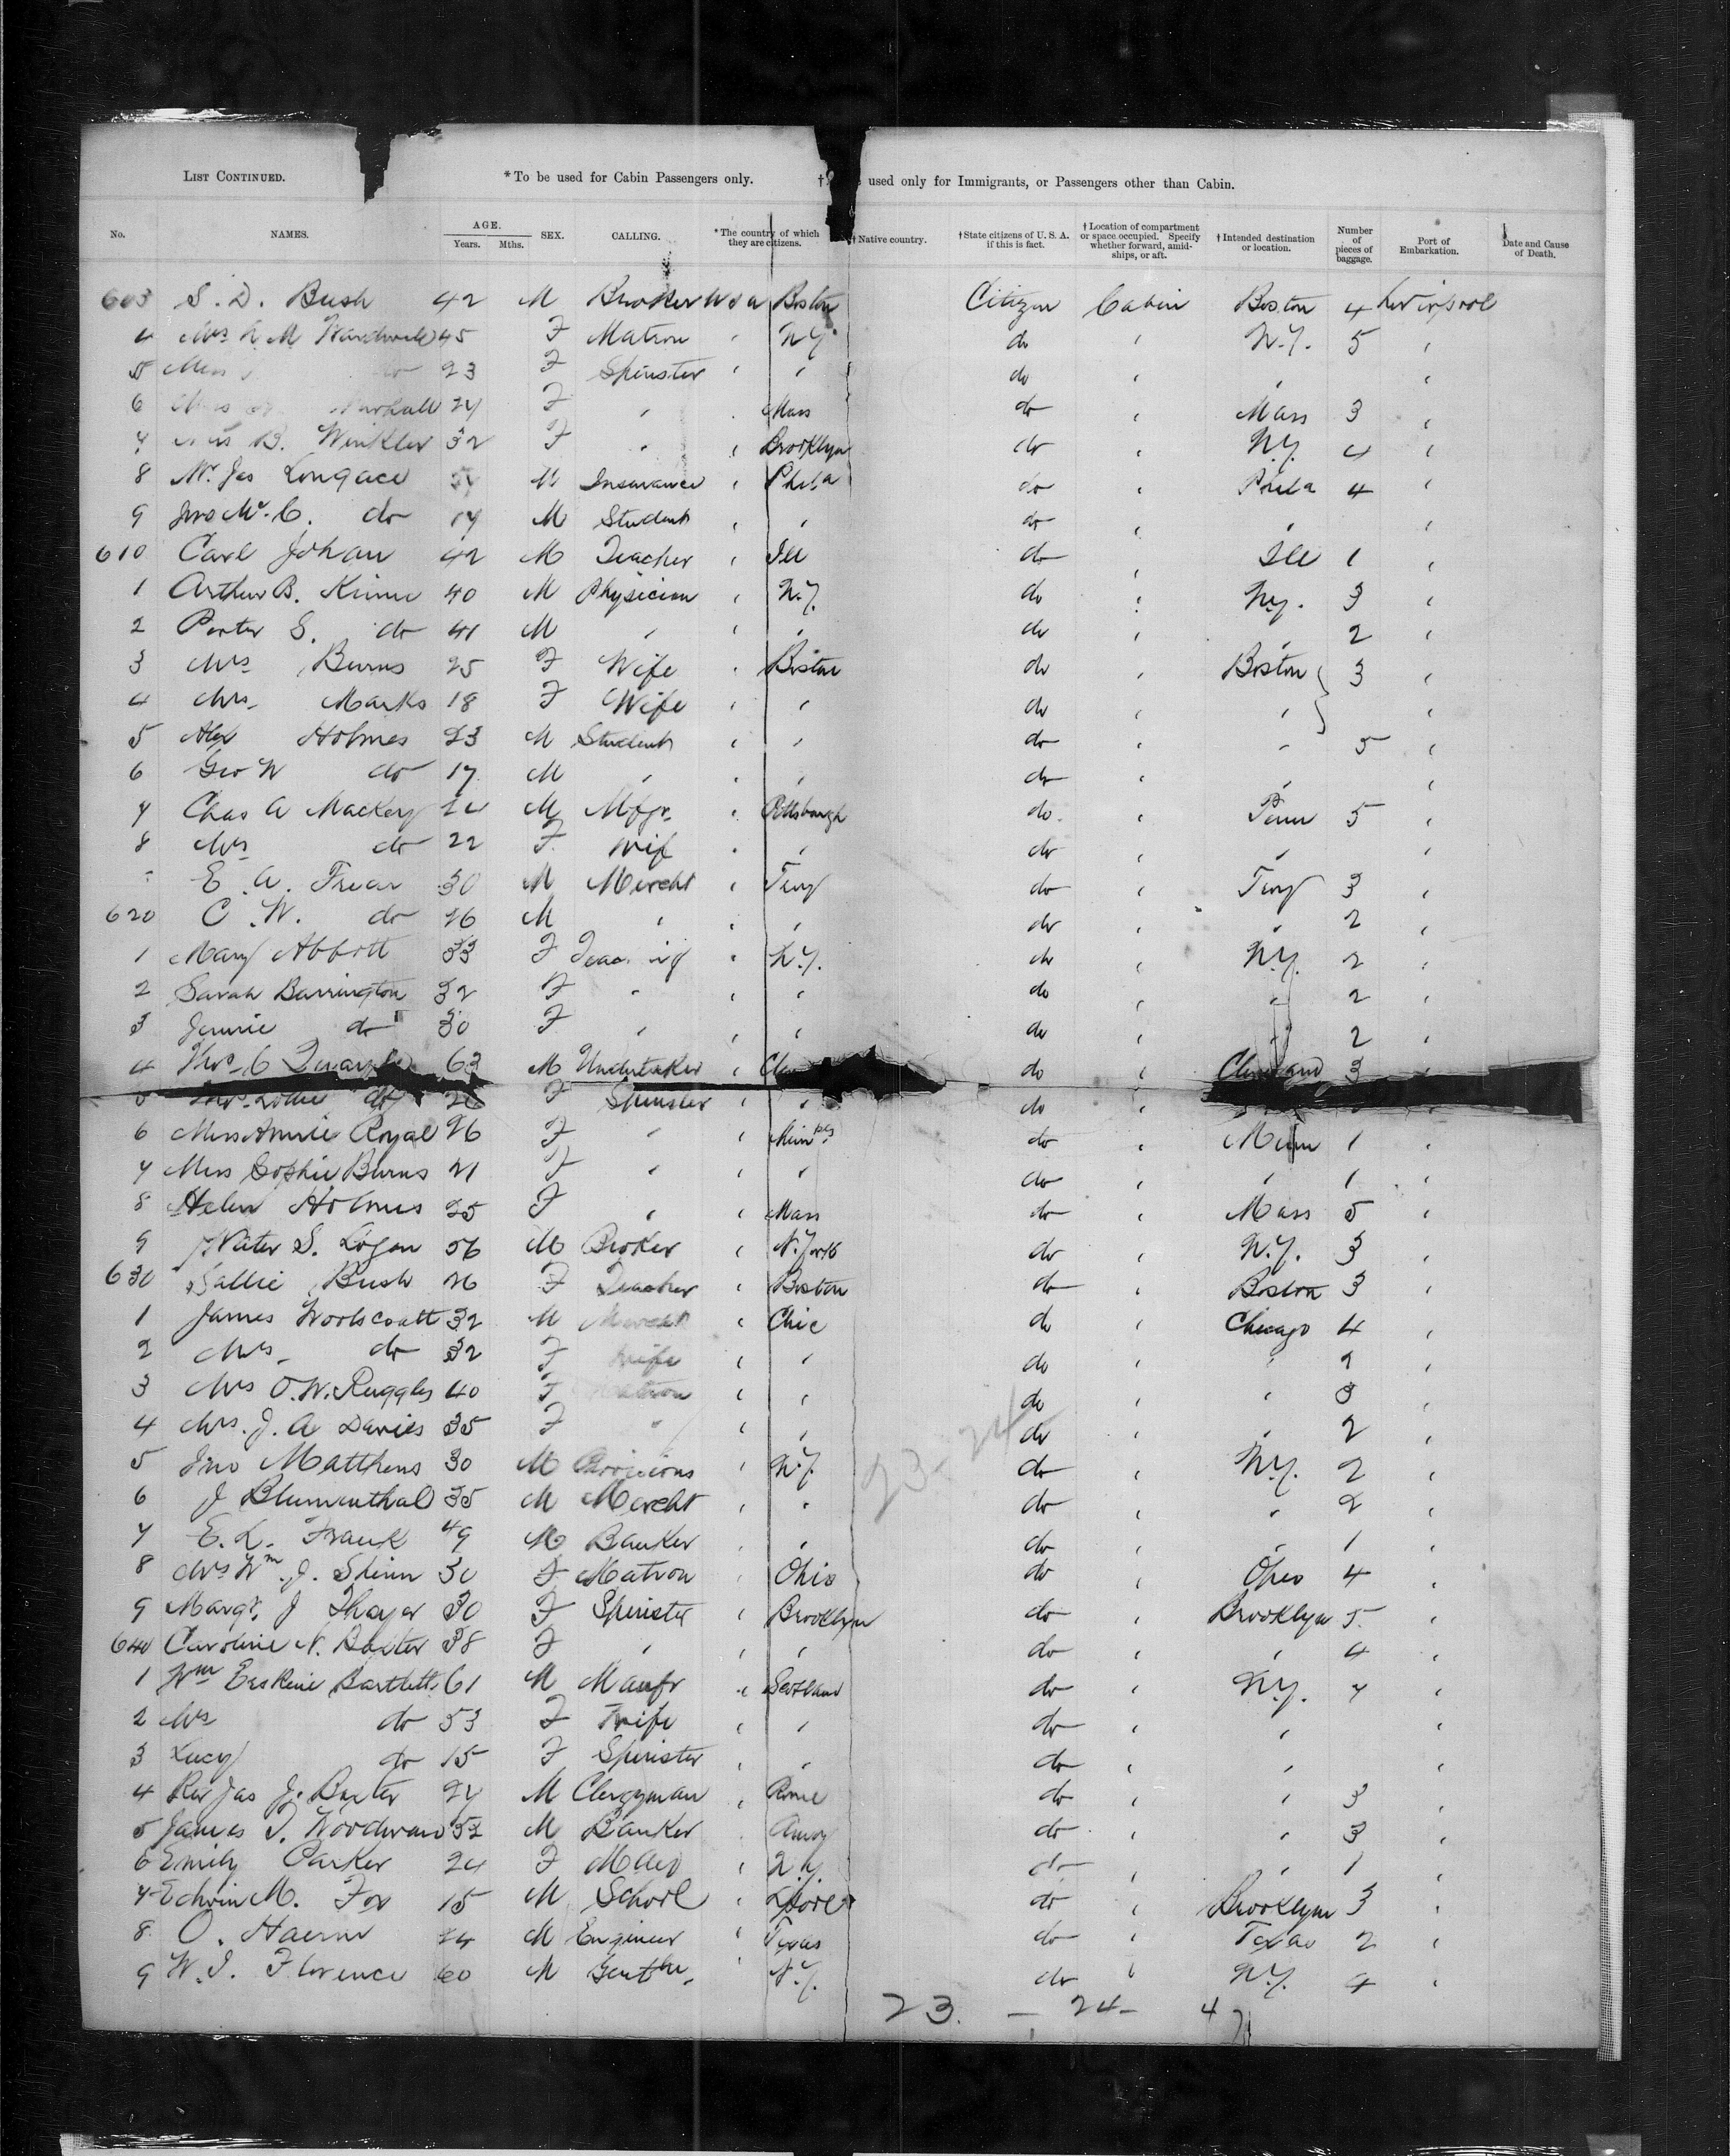 LIST CONTINUED. *To be used for Cabin Passengers only. † used only for Immigrants, or Passengers other than Cabin.
No. NAMES. AGE. Years. Mths. SEX. CALLING. *The country of which they are citizens. † Native country. †State citizens of U. S. A. if this is fact. †Location of compartment or space occupied. Specify whether forward, amidships, or aft. †Intended destination or location. Number of pieces of baggage. Port of Embarkation. Date and Cause of Death.
603 S. D. Bush 42 M Broker U S A Boston Citizen Cabin Boston 4 Liverpool
4 Mrs M 45 F Matron " N.Y. do " N.Y. 5 "
5 Miss do 23 F Spinster " " do " " "
6 F " " Mass do " Mass 3 "
7 B. Winkler 32 F " " Brooklyn do " N.Y. 4 "
8 Mr. Jas Longace M Insurance " Phila do " Phila 4 "
9 do 17 M Student " " do " " "
610 Carl Johan 42 M Teacher " Ill do " Ill 1 "
1 Arthur B. Kinne 40 M Physician " N.Y. do " N.Y. 3 "
2 Porter S. do 41 M " " " do " " 2 "
3 Mrs Burns 25 F Wife " Boston do " Boston 3 "
4 Mrs. Marks 18 F Wife " " do " " "
5 Alex Holmes 23 M Student " " do " " 5 "
6 Geo W do 17 M " " " do " " "
7 Chas A Mackey M Mfgr. " Pittsburgh do. " Penn 5 "
8 Mrs do 22 F. Wife " " do " " "
E. A. Frear 30 M Mercht " Troy do " Troy 3 "
620 C. W. do 26 M " " " do " " 2 "
1 Mary Abbott 33 F " N.Y. do " N.Y. 2 "
2 Sarah Barrington 32 F " " " do " " 2 "
3 Jennie do 30 F " " " do " " 2 "
4 C 63 M Undertaker " do " Cleveland 3
5 Lottie do 26 F Spinster " " do "
6 Miss Annie Royal 26 F " " Minn do " Minn 1 "
7 Miss Sophie Burns 21 F " " " do " " 1 "
8 Helen Holmes 25 F " " Mass do " Mass 5 "
9 Walter S. Logan 56 M Broker " N. York do " N.Y. 3 "
630 Sallie Bush 26 F Teacher " Boston do " Boston 3 "
1 James Woolscoatt 32 M Mercht " Chic do " Chicago 4 "
2 Mrs. do 32 F Wife " " do " " 2 "
3 Mrs O. W. Ruggles 40 F Matron " " do " " 3 "
4 Mrs. J. A Davies 35 F " " " do " " 2 "
5 Jno Matthews 30 M Provisions " N.Y. do " N.Y. 2 "
6 J Blumenthal 35 M Mercht " " do " " 2 "
7 E. L. Frank 49 M Banker " " do " " 1 "
8 Mrs Wm. J. Shinn 30 F Matron " Ohio do " Ohio 4 "
9 Margt. J Thayer 30 F Spinster " Brooklyn do " Brooklyn 5. "
640 Caroline N. Baxter 38 F " " " do " " 4 "
1 Wm Erskine Bartlett 61 M Manfr " Scotland do " N.Y. 7 "
2 Mrs do 53 F Wife " " do " " "
3 Lucy do 15 F Spinster " " do " " "
4 Rev Jas J. Baxter 27 M Clergyman " Rome do " " 3 "
5 James T. Woodward 52 M Banker " do " " 3 "
6 Emily Parker 24 F Maid " N.Y. do " " 1 "
7 Edwin M. Fox 15 M School " do " Brooklyn 3 "
8. O. 24 M Engineer " Texas do " Texas 2 "
9 W. J. Florence 60 M " N.Y. do " N.Y. 4 "
23 - 24
23. - 24 -